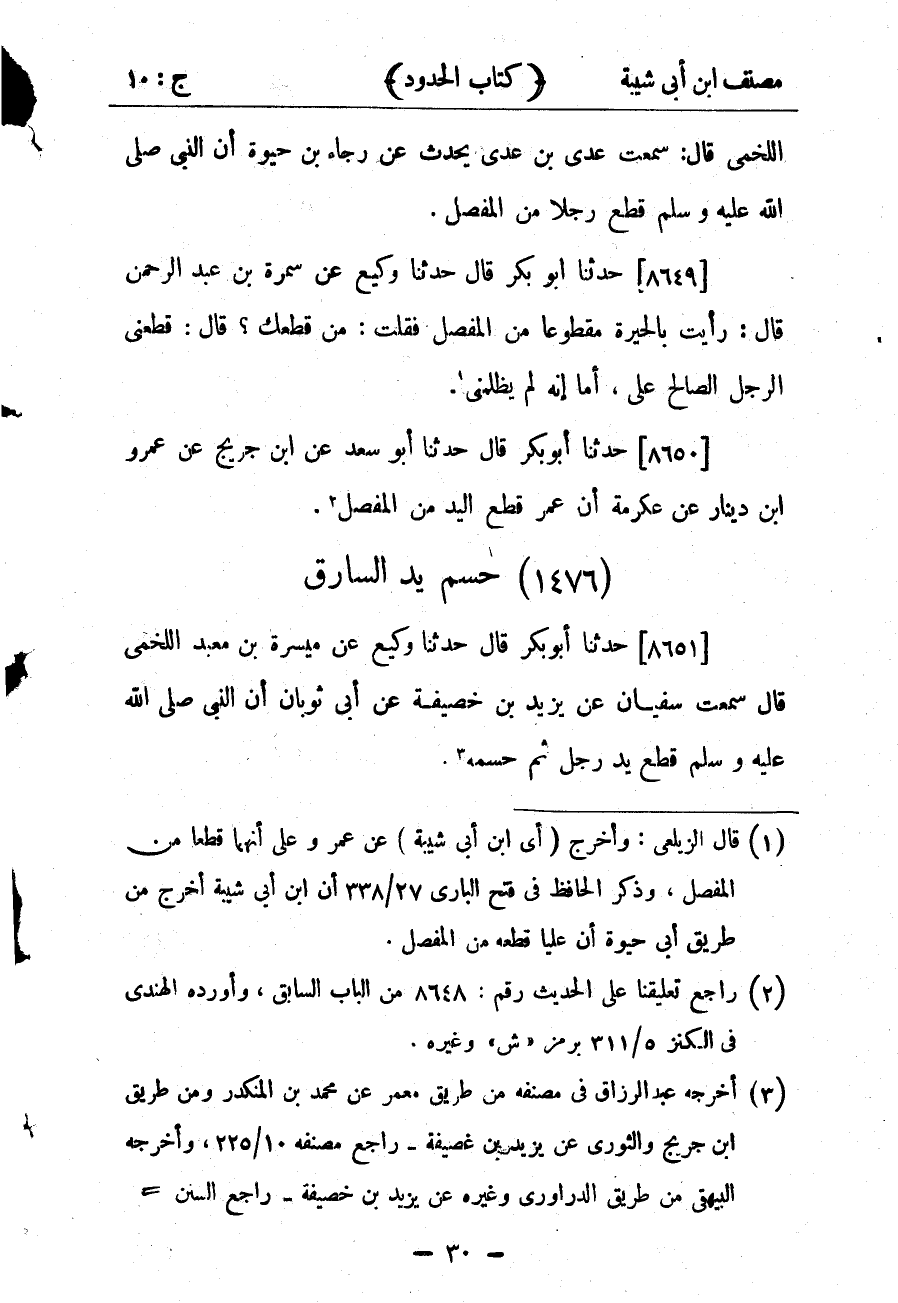 مصنف ابن أبى شيبة ﴿ كتاب الحدود ﴾ ج : ١٠
اللخمى قال: سمعت عدى بن عدى يحدث عن رجاء بن حيوة أن النبى صلى
الله عليه و سلم قطع رجلا من المفصل .
[٨٦٤٩] حدثنا ابو بكر قال حدثنا وكيع عن سمرة بن عبد الرحمن
قال : رأيت بالحيرة مقطوعا من المفصل فقلت : من قطعك ؟ قال : قطعنى
الرجل الصالح على ، أما إنه لم يظلمنى١.
[٨٦٥٠] حدثنا أبوبكر قال حدثنا أبو سعد عن ابن جريج عن عمرو
ابن دينار عن عكرمة أن عمر قطع اليد من المفصل٢ .
(١٤٧٦) حسم يد السارق
[٨٦٥١] حدثنا أبوبكر قال حدثنا وكيع عن ميسرة بن معبد اللخمى
قال سمعت سفيـان عن يزيد بن خصيفـة عن أبى ثوبان أن النبى صلى الله
عليه و سلم قطع يد رجل ثم حسمه٣ .
(١) قال الزيلعى : وأخرج ( أى ابن أبى شيبة ) عن عمر و على أنهما قطعا من
المفصل ، وذكر الحافظ فى فتح البارى ٣٣٨/٢٧ أن ابن أبى شيبة أخرج من
طريق أبى حيوة أن عليا قطعه من المفصل .
(٢) راجع تعليقنا على الحديث رقم : ٨٦٤٨ من الباب السابق ، وأورده الهندى
فى الكنز ٣١١/٥ برمز « ش » وغيره .
(٣) أخرجه عبدالرزاق فى مصنفه من طريق معمر عن محمد بن المنكدر ومن طريق
ابن جريج والثورى عن يزيد بن غصيفة ـ راجع مصنفه ٢٢٥/١٠ ، وأخرجه
البيهقى من طريق الدراوردى وغيره عن يزيد بن خصيفة ـ راجع السنن =
— ٣٠ —